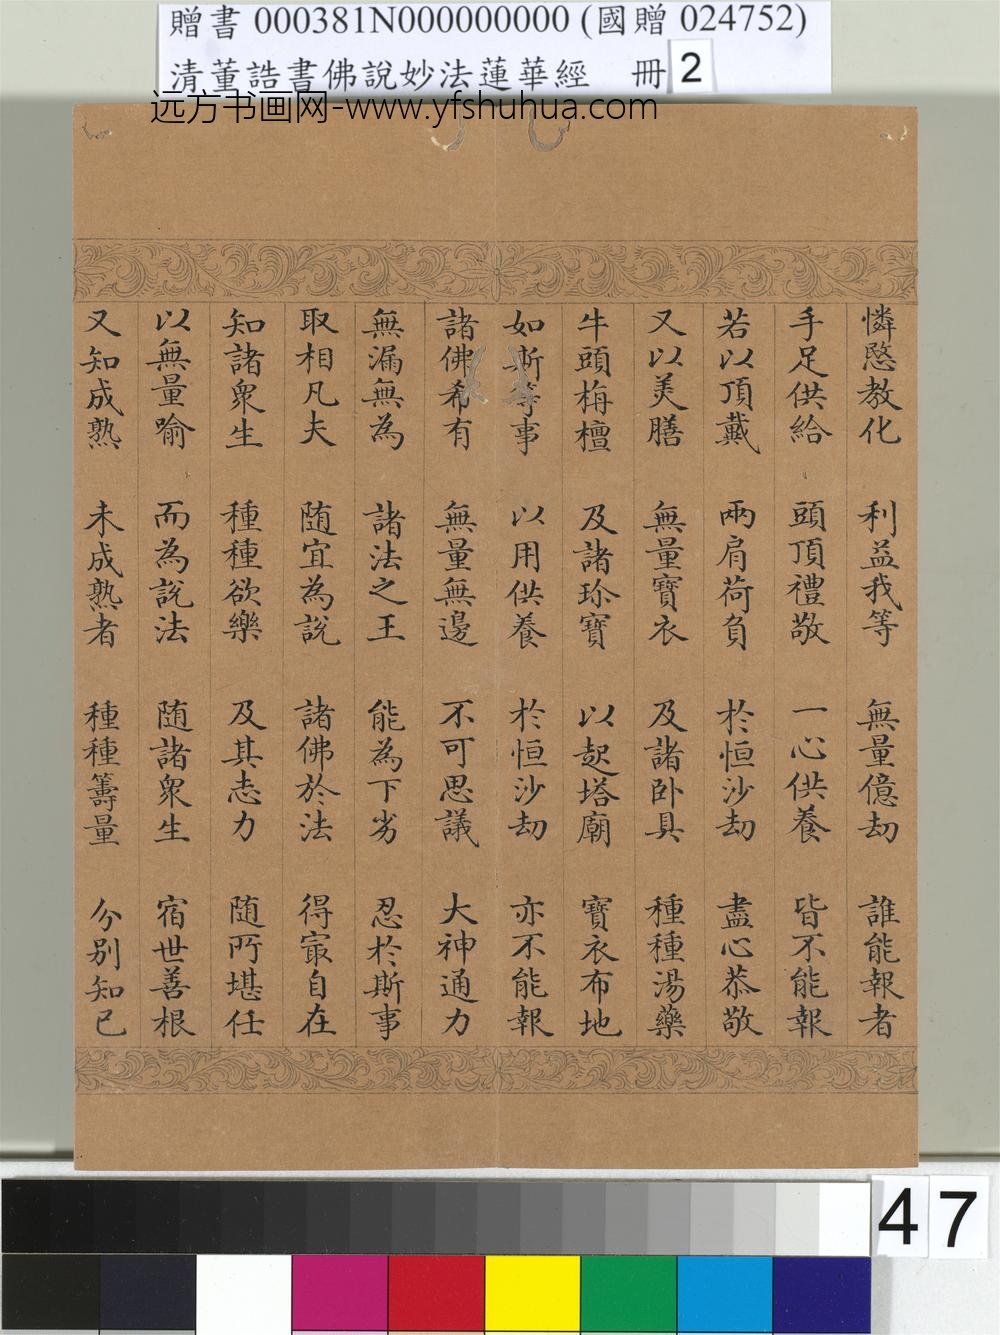 贈書 000381N000000000 (國贈 024752)
清董誥書佛說妙法蓮華經 冊 2
远方书画网-www.yfshuhua.com
憐愍教化 利益我等 無量億劫 誰能報者
手足供給 頭頂禮敬 一心供養 皆不能報
若以頂戴 兩肩荷負 於恒沙劫 盡心恭敬
又以美膳 無量寶衣 及諸卧具 種種湯藥
牛頭栴檀 及諸珍寶 以起塔廟 寶衣布地
如斯等事 以用供養 於恒沙劫 亦不能報
諸佛希有 無量無邊 不可思議 大神通力
無漏無為 諸法之王 能為下劣 忍於斯事
取相凡夫 随宜為說 諸佛於法 得㝡自在
知諸衆生 種種欲樂 及其志力 随所堪任
以無量喻 而為說法 随諸衆生 宿世善根
又知成熟 未成熟者 種種籌量 分别知已
47